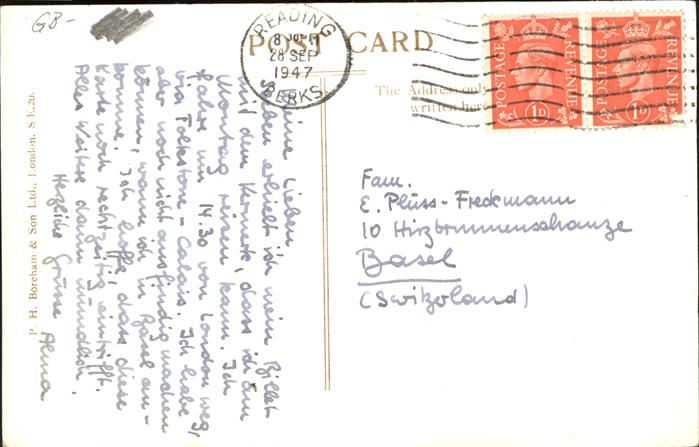 GB-
POST CARD
READING
8 30 PM
28 SEP
1947
BERKS.
The Address only
written here
POSTAGE REVENUE
1D
POSTAGE REVENUE
1D
Meine Lieben
Soeben erhielt ich mein Billet
mit dem Vermerk, dass ich am
Montag reisen kann. Ich
fahre um 14.30 von London weg,
via Folkstone - Calais. Ich habe
aber noch nicht ausfindig machen
können, wann ich in Basel an-
komme. Ich hoffe, dass diese
Karte noch rechtzeitig eintrifft.
Alles Weitere dann mündlich.
Herzliche Grüsse Alma
Fam.
E. Plüss-Freckmann
10 Hirzbrunnenschanze
Basel
(Switzerland)
P. H. Boreham & Son Ltd., London, S E.20.